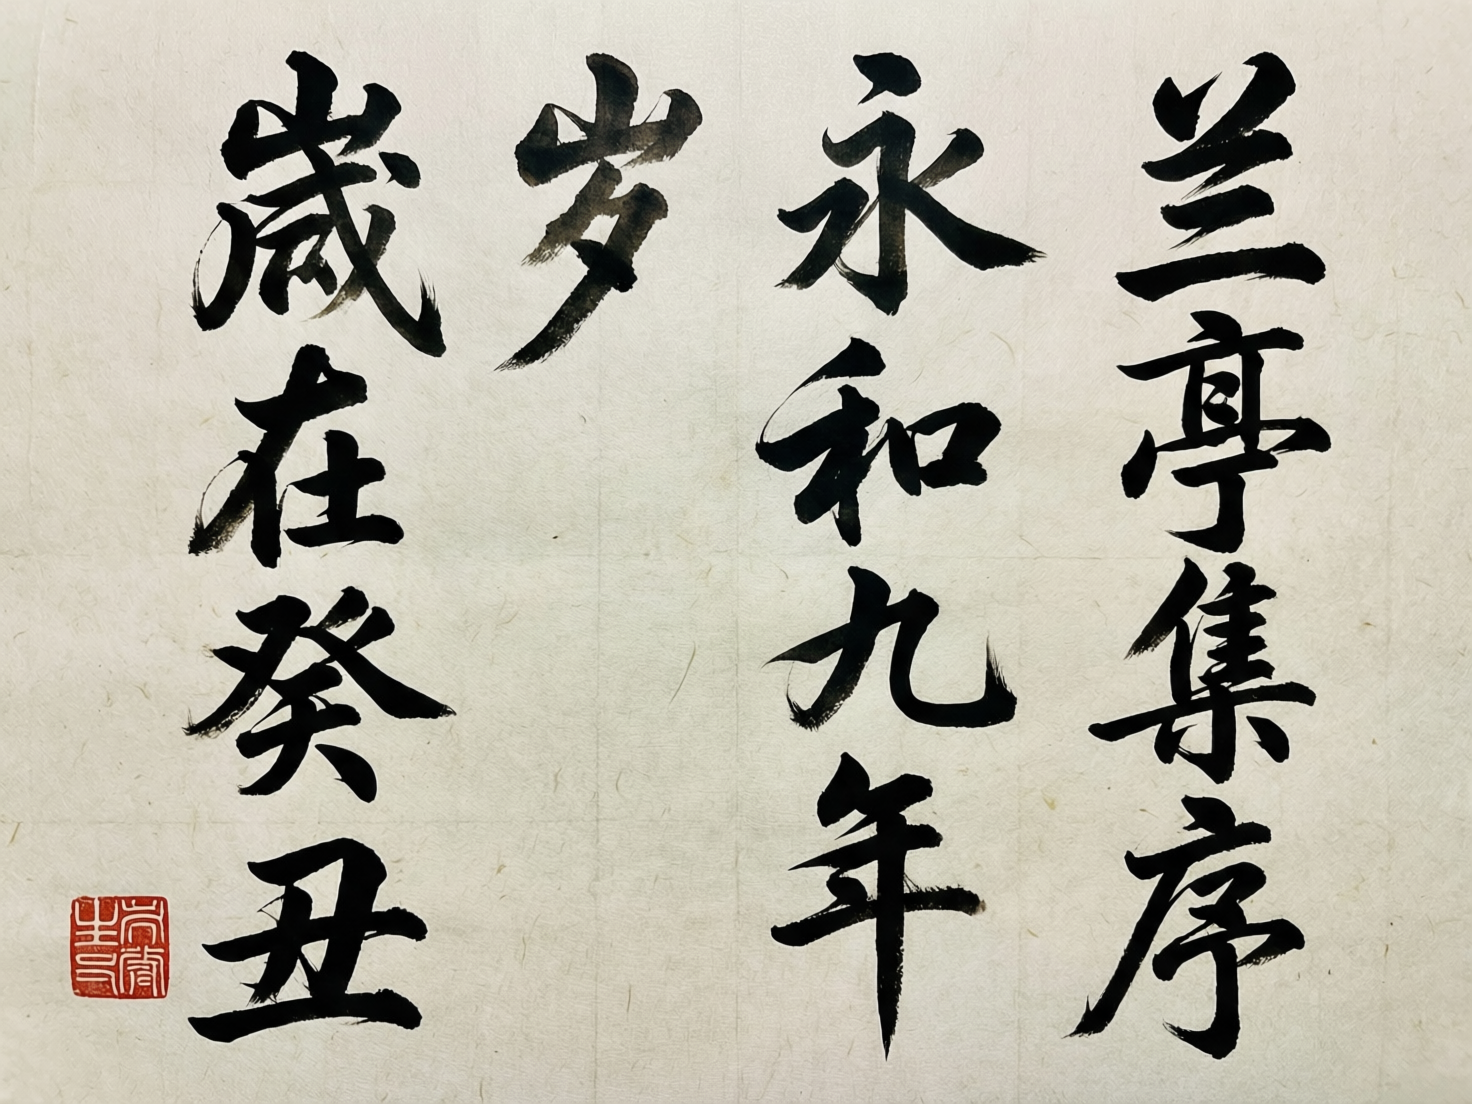 兰亭集序
永和九年
岁
歲在癸丑